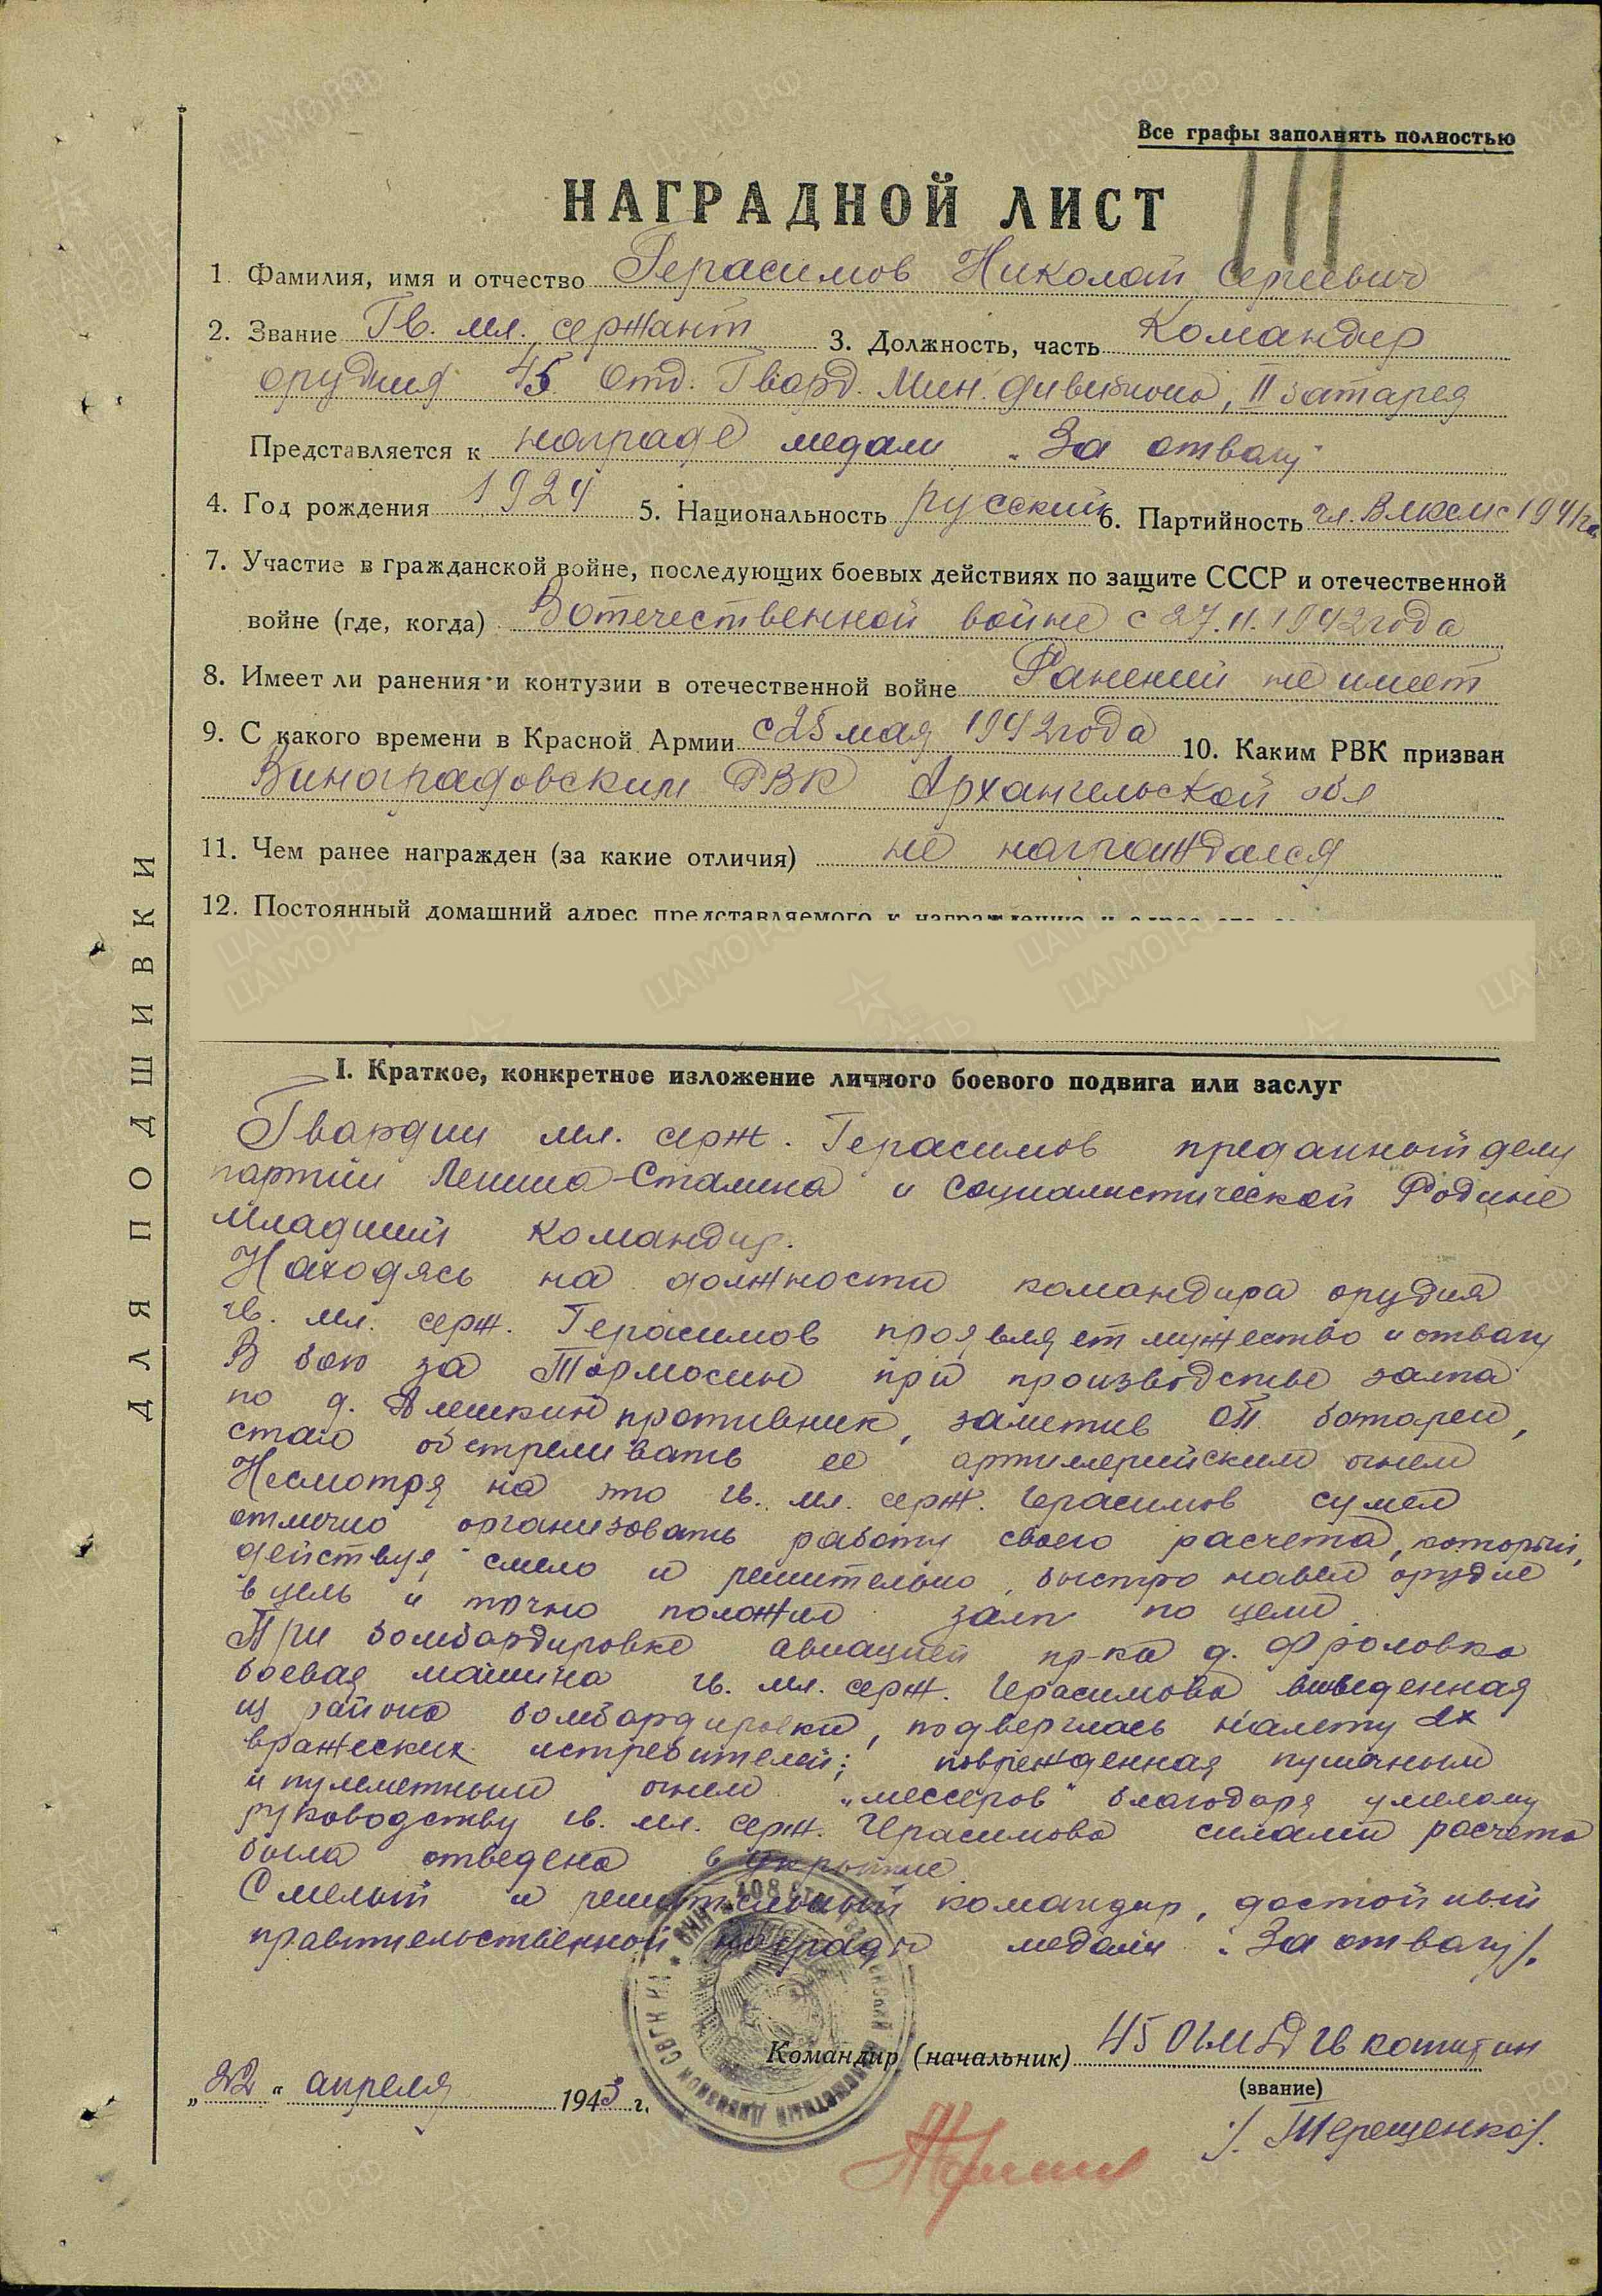 Все графы заполнять полностью
НАГРАДНОЙ ЛИСТ
1. Фамилия, имя и отчество Герасимов Николай Сергеевич
2. Звание Гв. мл. сержант 3. Должность, часть Командир
орудия 45 Отд. Гвард. Мин. дивизиона, II батарея
Представляется к награде медали „За отвагу"
4. Год рождения 1924 5. Национальность русский 6. Партийность чл. ВЛКСМ с 1941 го
7. Участие в гражданской войне, последующих боевых действиях по защите СССР и отечественной
войне (где, когда) В отечественной войне с 27.11.1942 года
8. Имеет ли ранения и контузии в отечественной войне Ранений не имеет
9. С какого времени в Красной Армии с 25 мая 1942 года 10. Каким РВК призван
Виноградовским РВК Архангельской обл
11. Чем ранее награжден (за какие отличия) не награждался
12. Постоянный домашний адрес представляемого к награждению и адрес его
ДЛЯ ПОДШИВКИ
I. Краткое, конкретное изложение личного боевого подвига или заслуг
Гвардии мл. серж. Герасимов преданный делу
партии Ленина-Сталина и социалистической Родине
младший командир.
Находясь на должности командира орудия
гв. мл. серж. Герасимов проявляет мужество и отвагу
В бою за Тормосин при производстве залпа
по д. Алешкин противник, заметив ОП батареи,
стал обстреливать ее артиллерийским огнем
Несмотря на это гв. мл. серж. Герасимов сумел
отлично организовать работу своего расчета, который,
действуя смело и решительно, быстро навел орудие
в цель и точно положил залп по цели.
При бомбардировке авиацией пр-ка д. Фроловка
боевая машина гв. мл. серж. Герасимова выведенная
из района бомбардировки, подверглась налету 2х
вражеских истребителей; поврежденная пушечным
и пулеметным огнем „мессеров" благодаря умелому
руководству гв. мл. серж. Герасимова силами расчета
была отведена в укрытие.
Смелый и решительный командир, достойный
правительственной награды медали „За отвагу".
Командир (начальник) 45 ОГМД гв капитан
(звание)
/Терещенко/.
„22" апреля 1943 г.